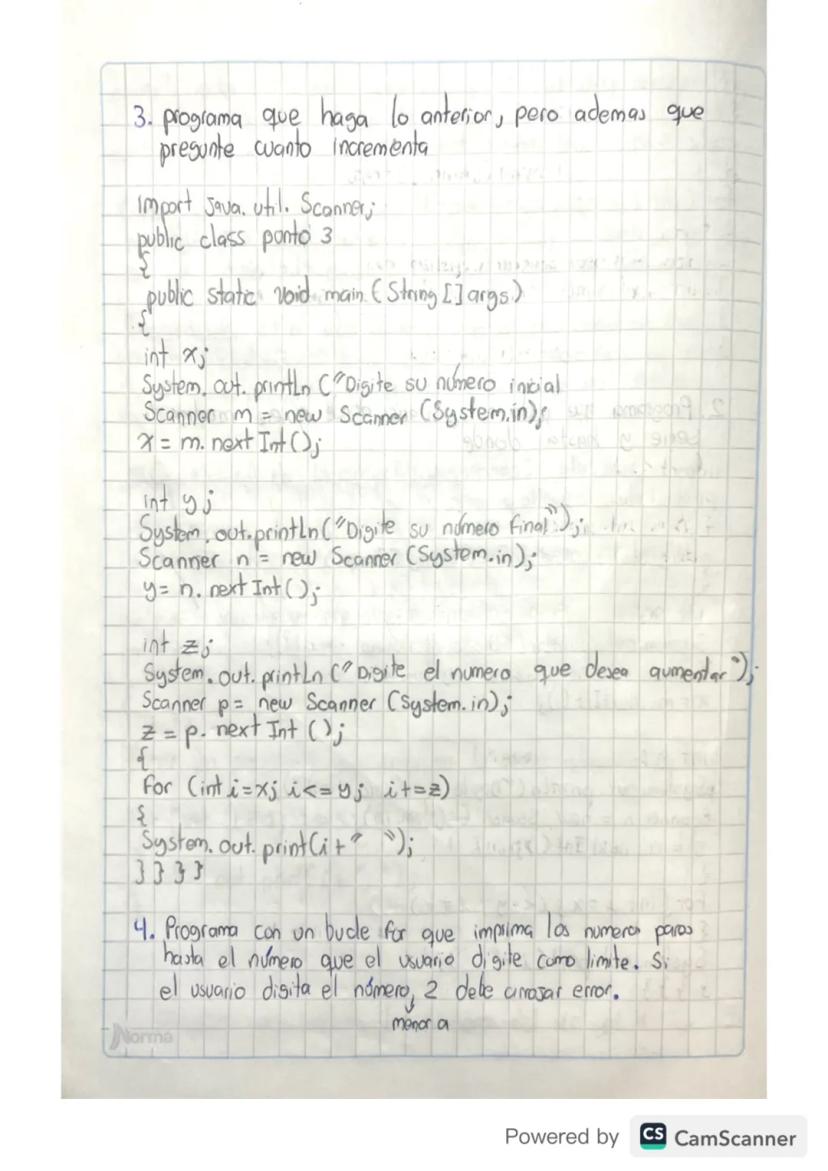 3. programa que haga lo anterior, pero ademas que
pregunte cuanto incrementa
Import Java. util. Scanner;
public class ponto 3
{
public static void main (String [] args)
{
int x;
System. out. println ("Digite su número inicial
Scanner m = new Scanner (System.in);
x = m. next Int ();
int y;
System. out. println ("Digite su número final");
Scanner n = new Scanner (System.in);
y = n. next Int ();
int z;
System. out. println (" Digite el numero que desea aumentar");
Scanner p = new Scanner (System. in);
z = p. next Int ();
{
for (int i=x; i<=y; i+=z)
{
System. out. print(i+" ");
} } } }
4. Programa con un bucle for que imprima los numeros pares
hasta el número que el usuario digite como limite. Si
el usuario digita el número, 2 debe arrojar error.
menor a
Norma
Powered by CS CamScanner